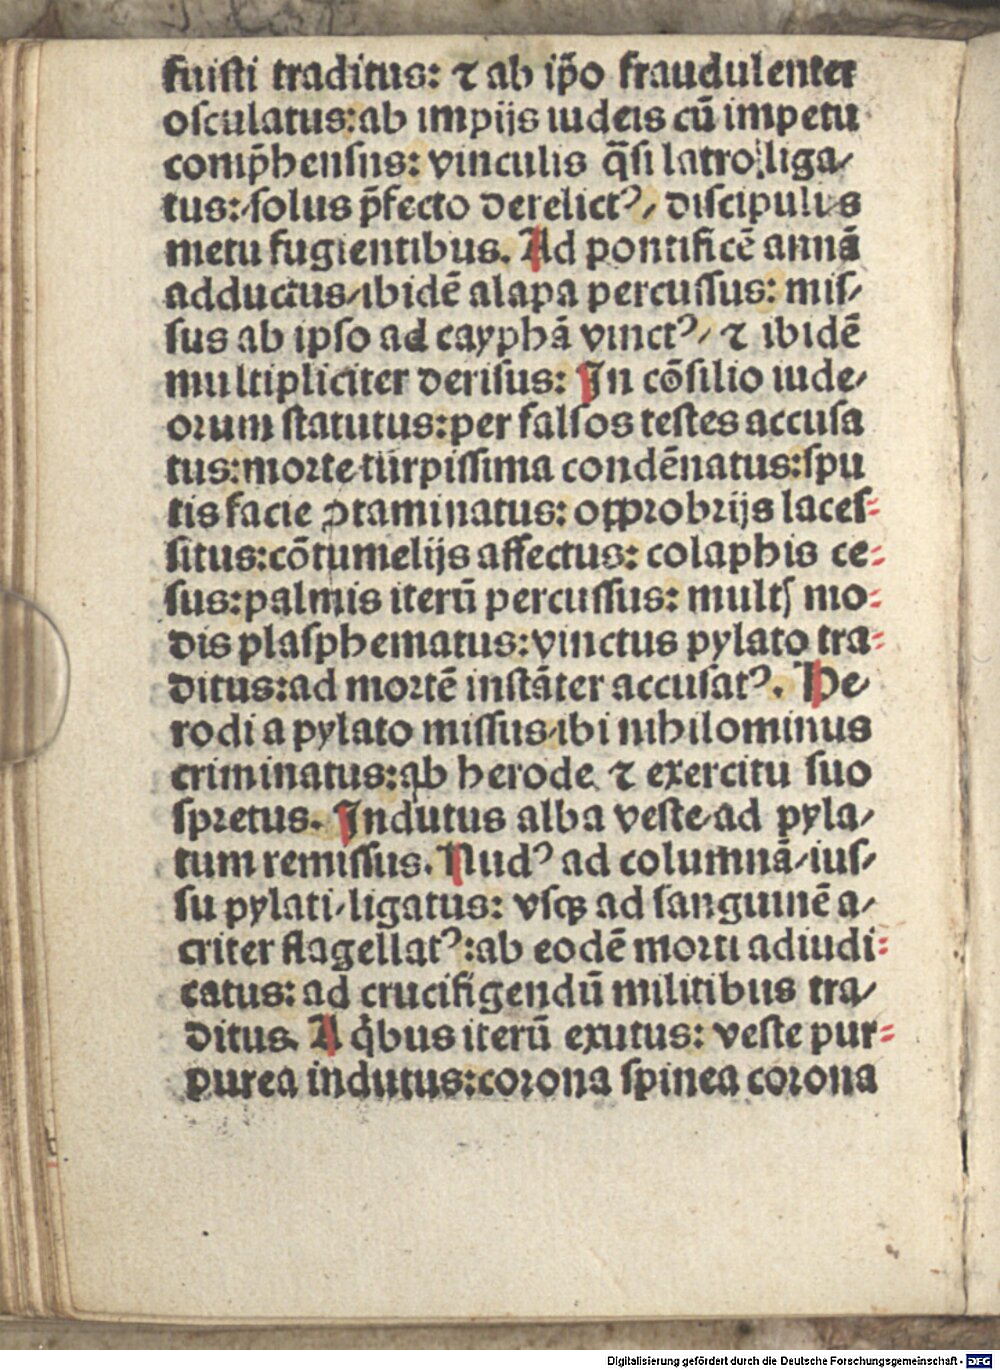 fuisti traditus: ⁊ ab ip̄o fraudulenter
osculatus: ab impijs iudeis cū impetu
comp̄hensus: vinculis q̄si latro: liga⸗
tus: solus p̄fecto derelictꝰ, discipulis
metu fugientibus. Ad pontificē annā
adductus, ibidē alapa percussus: mis⸗
sus ab ipso ad cayphā vinctꝰ, ⁊ ibidē
multipliciter derisus: In cōsilio iude⸗
orum statutus: per falsos testes accusa
tus: morte turpissima condēnatus: spu
tis facie ꝯtaminatus: opprobrijs laces⸗
situs: cōtumelijs affectus: colaphis ce⸗
sus: palmis iterū percussus: multꝭ mo⸗
dis plasphematus: vinctus pylato tra⸗
ditus: ad mortē instāter accusatꝰ. He⸗
rodi a pylato missus, ibi nihilominus
criminatus: ab herode ⁊ exercitu suo
spretus. Indutus alba veste, ad pyla⸗
tum remissus. Nudꝰ ad columnā, ius⸗
su pylati, ligatus: vsqꝫ ad sanguinē a⸗
criter flagellatꝰ: ab eodē morti adiudi⸗
catus: ad crucifigendū militibus tra⸗
ditus. A q̇bus iterū exutus: veste pur⸗
purea indutus: corona spinea corona
Digitalisierung gefördert durch die Deutsche Forschungsgemeinschaft - DFG